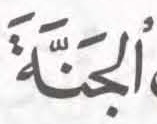 الجَنَّةَ